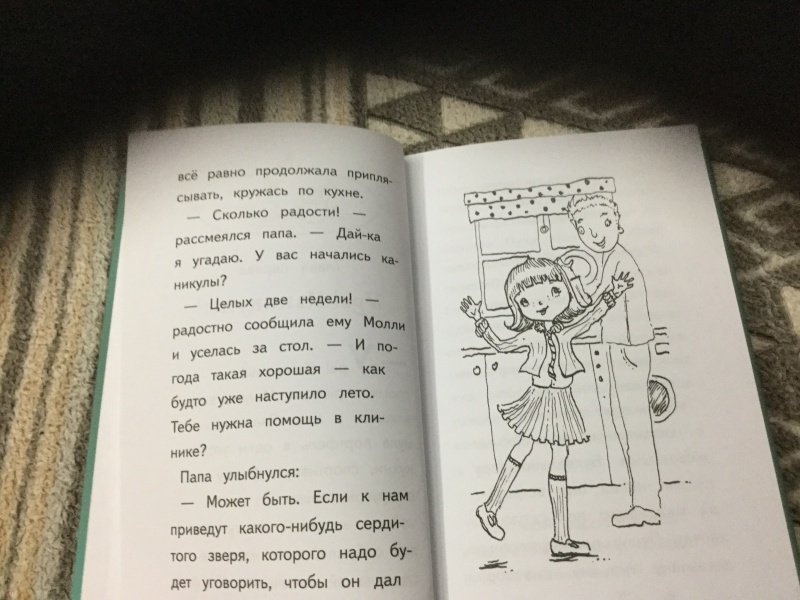 всё равно продолжала припля-
сывать, кружась по кухне.
— Сколько радости! —
рассмеялся папа. — Дай-ка
я угадаю. У вас начались ка-
никулы?
— Целых две недели! —
радостно сообщила ему Молли
и уселась за стол. — И по-
года такая хорошая — как
будто уже наступило лето.
Тебе нужна помощь в кли-
нике?
Папа улыбнулся:
— Может быть. Если к нам
приведут какого-нибудь серди-
того зверя, которого надо бу-
дет уговорить, чтобы он дал